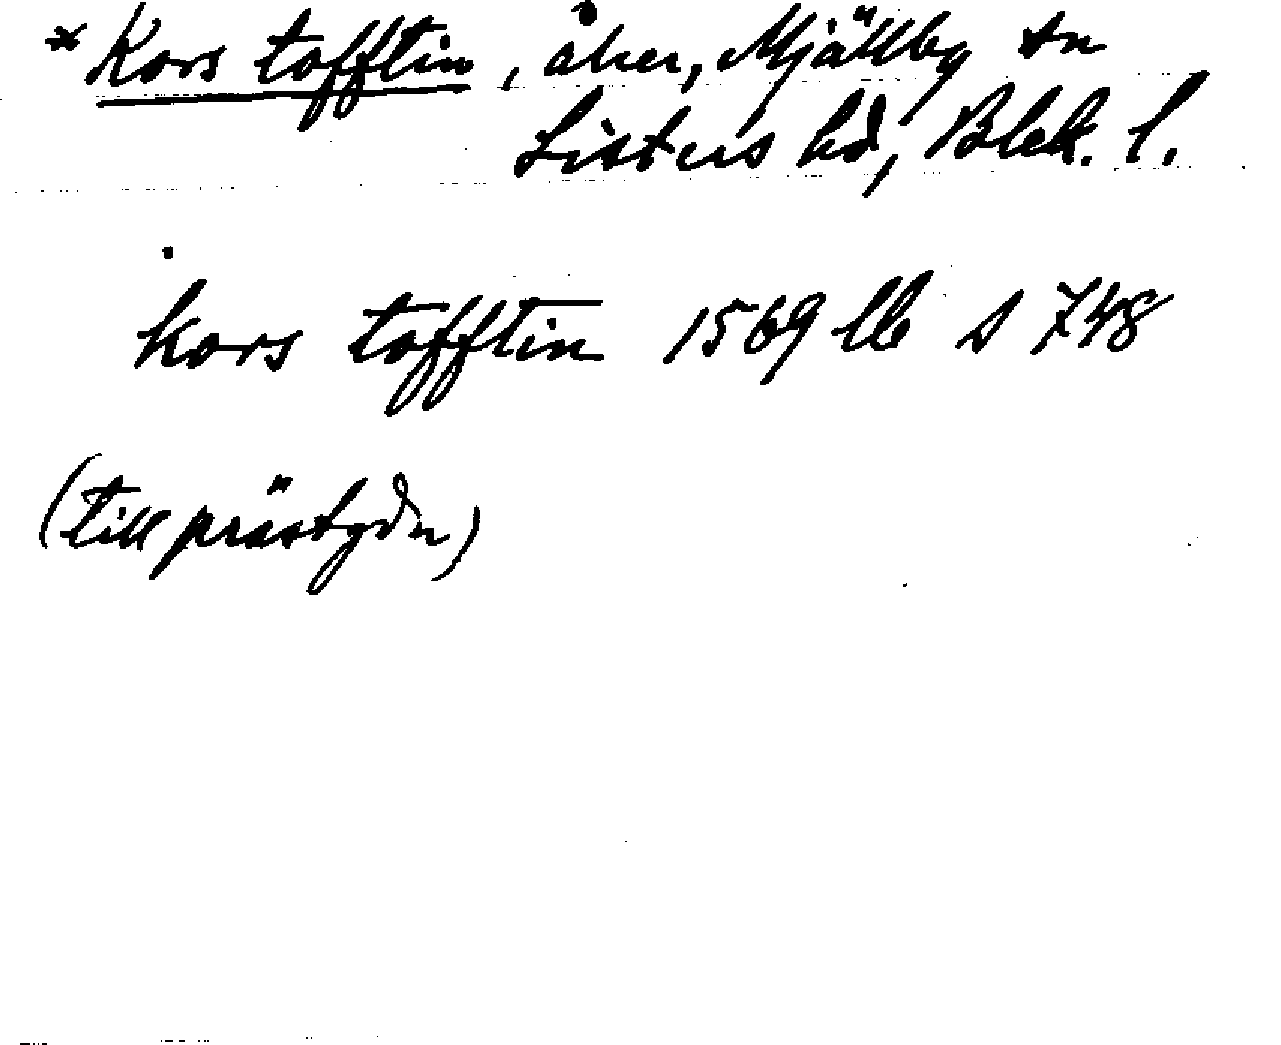 * Kors tofftin, åker, Mjällby sn
Listers hd, Blek. l.
kors tofftin 1569 lb s 748
(till prästgdn)